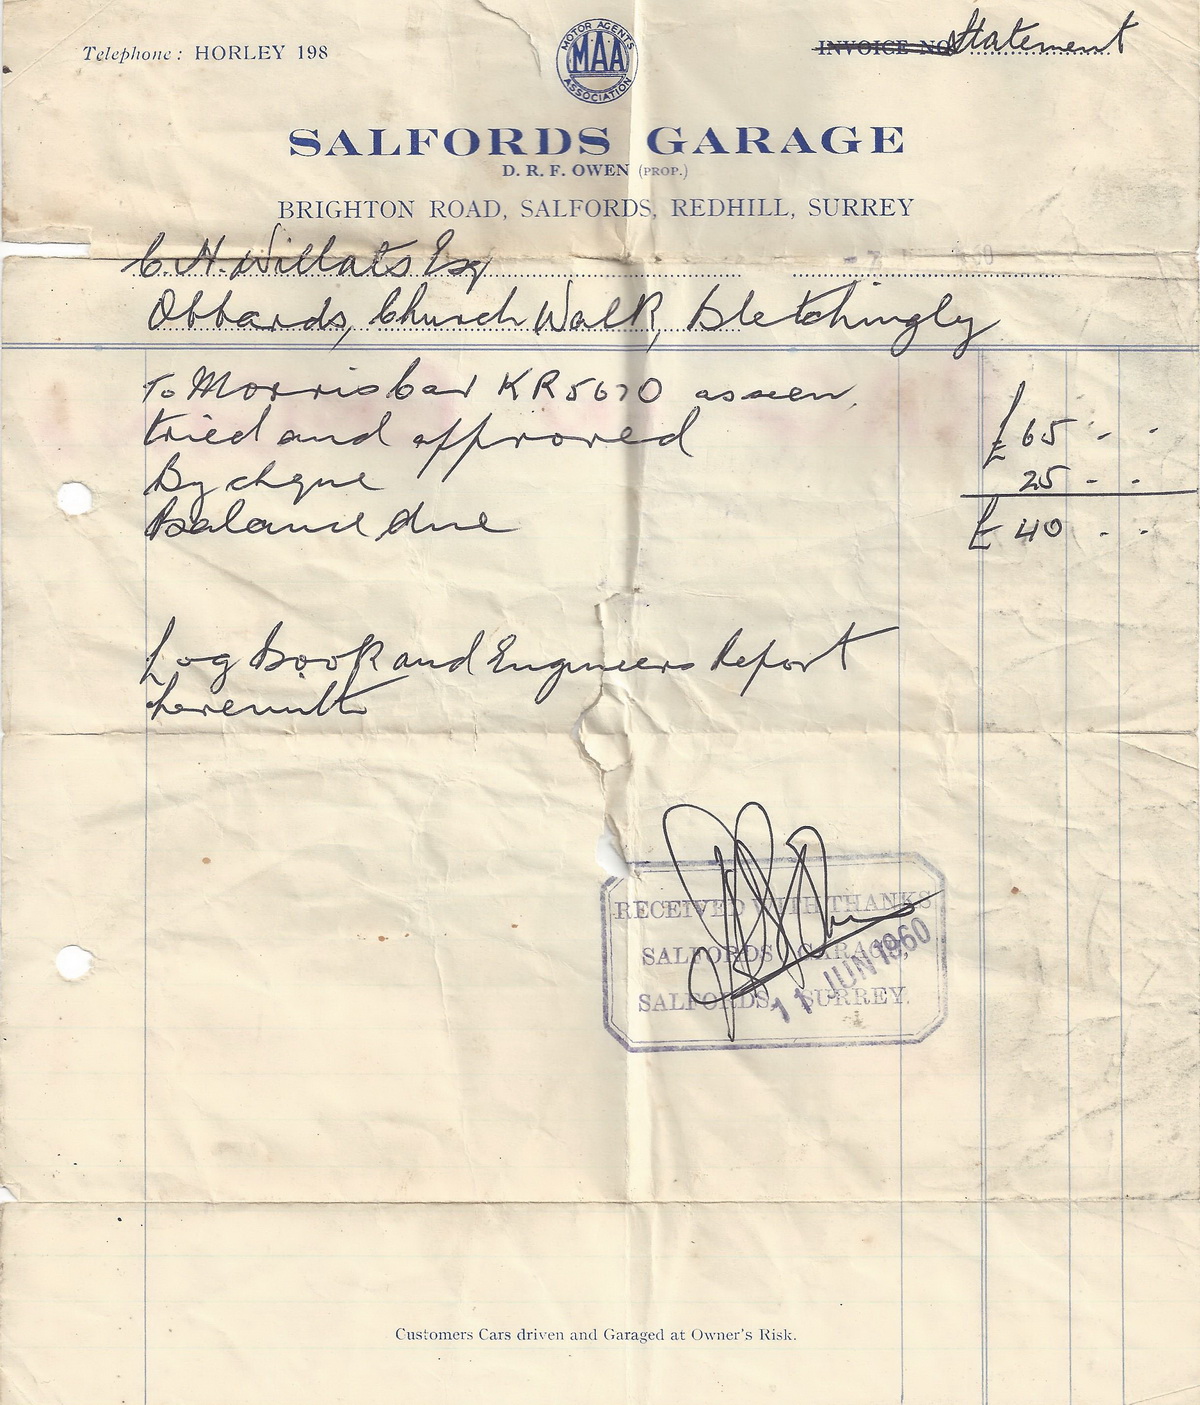 Telephone: HORLEY 198
MOTOR AGENTS
MAA
ASSOCIATION
INVOICE NO Statement
SALFORDS GARAGE
D. R. F. OWEN (PROP.)
BRIGHTON ROAD, SALFORDS, REDHILL, SURREY
C. H. Willats Esq
Obbards, Church Walk, Bletchingly
To Morris Car KR5670 as seen,
tried and approved £65 - -
By cheque 25 - -
Balance due £40 - -
Log Book and Engineers Report
herewith
RECEIVED WITH THANKS
SALFORDS GARAGE,
SALFORDS, SURREY.
11 JUN 1960
Customers Cars driven and Garaged at Owner's Risk.